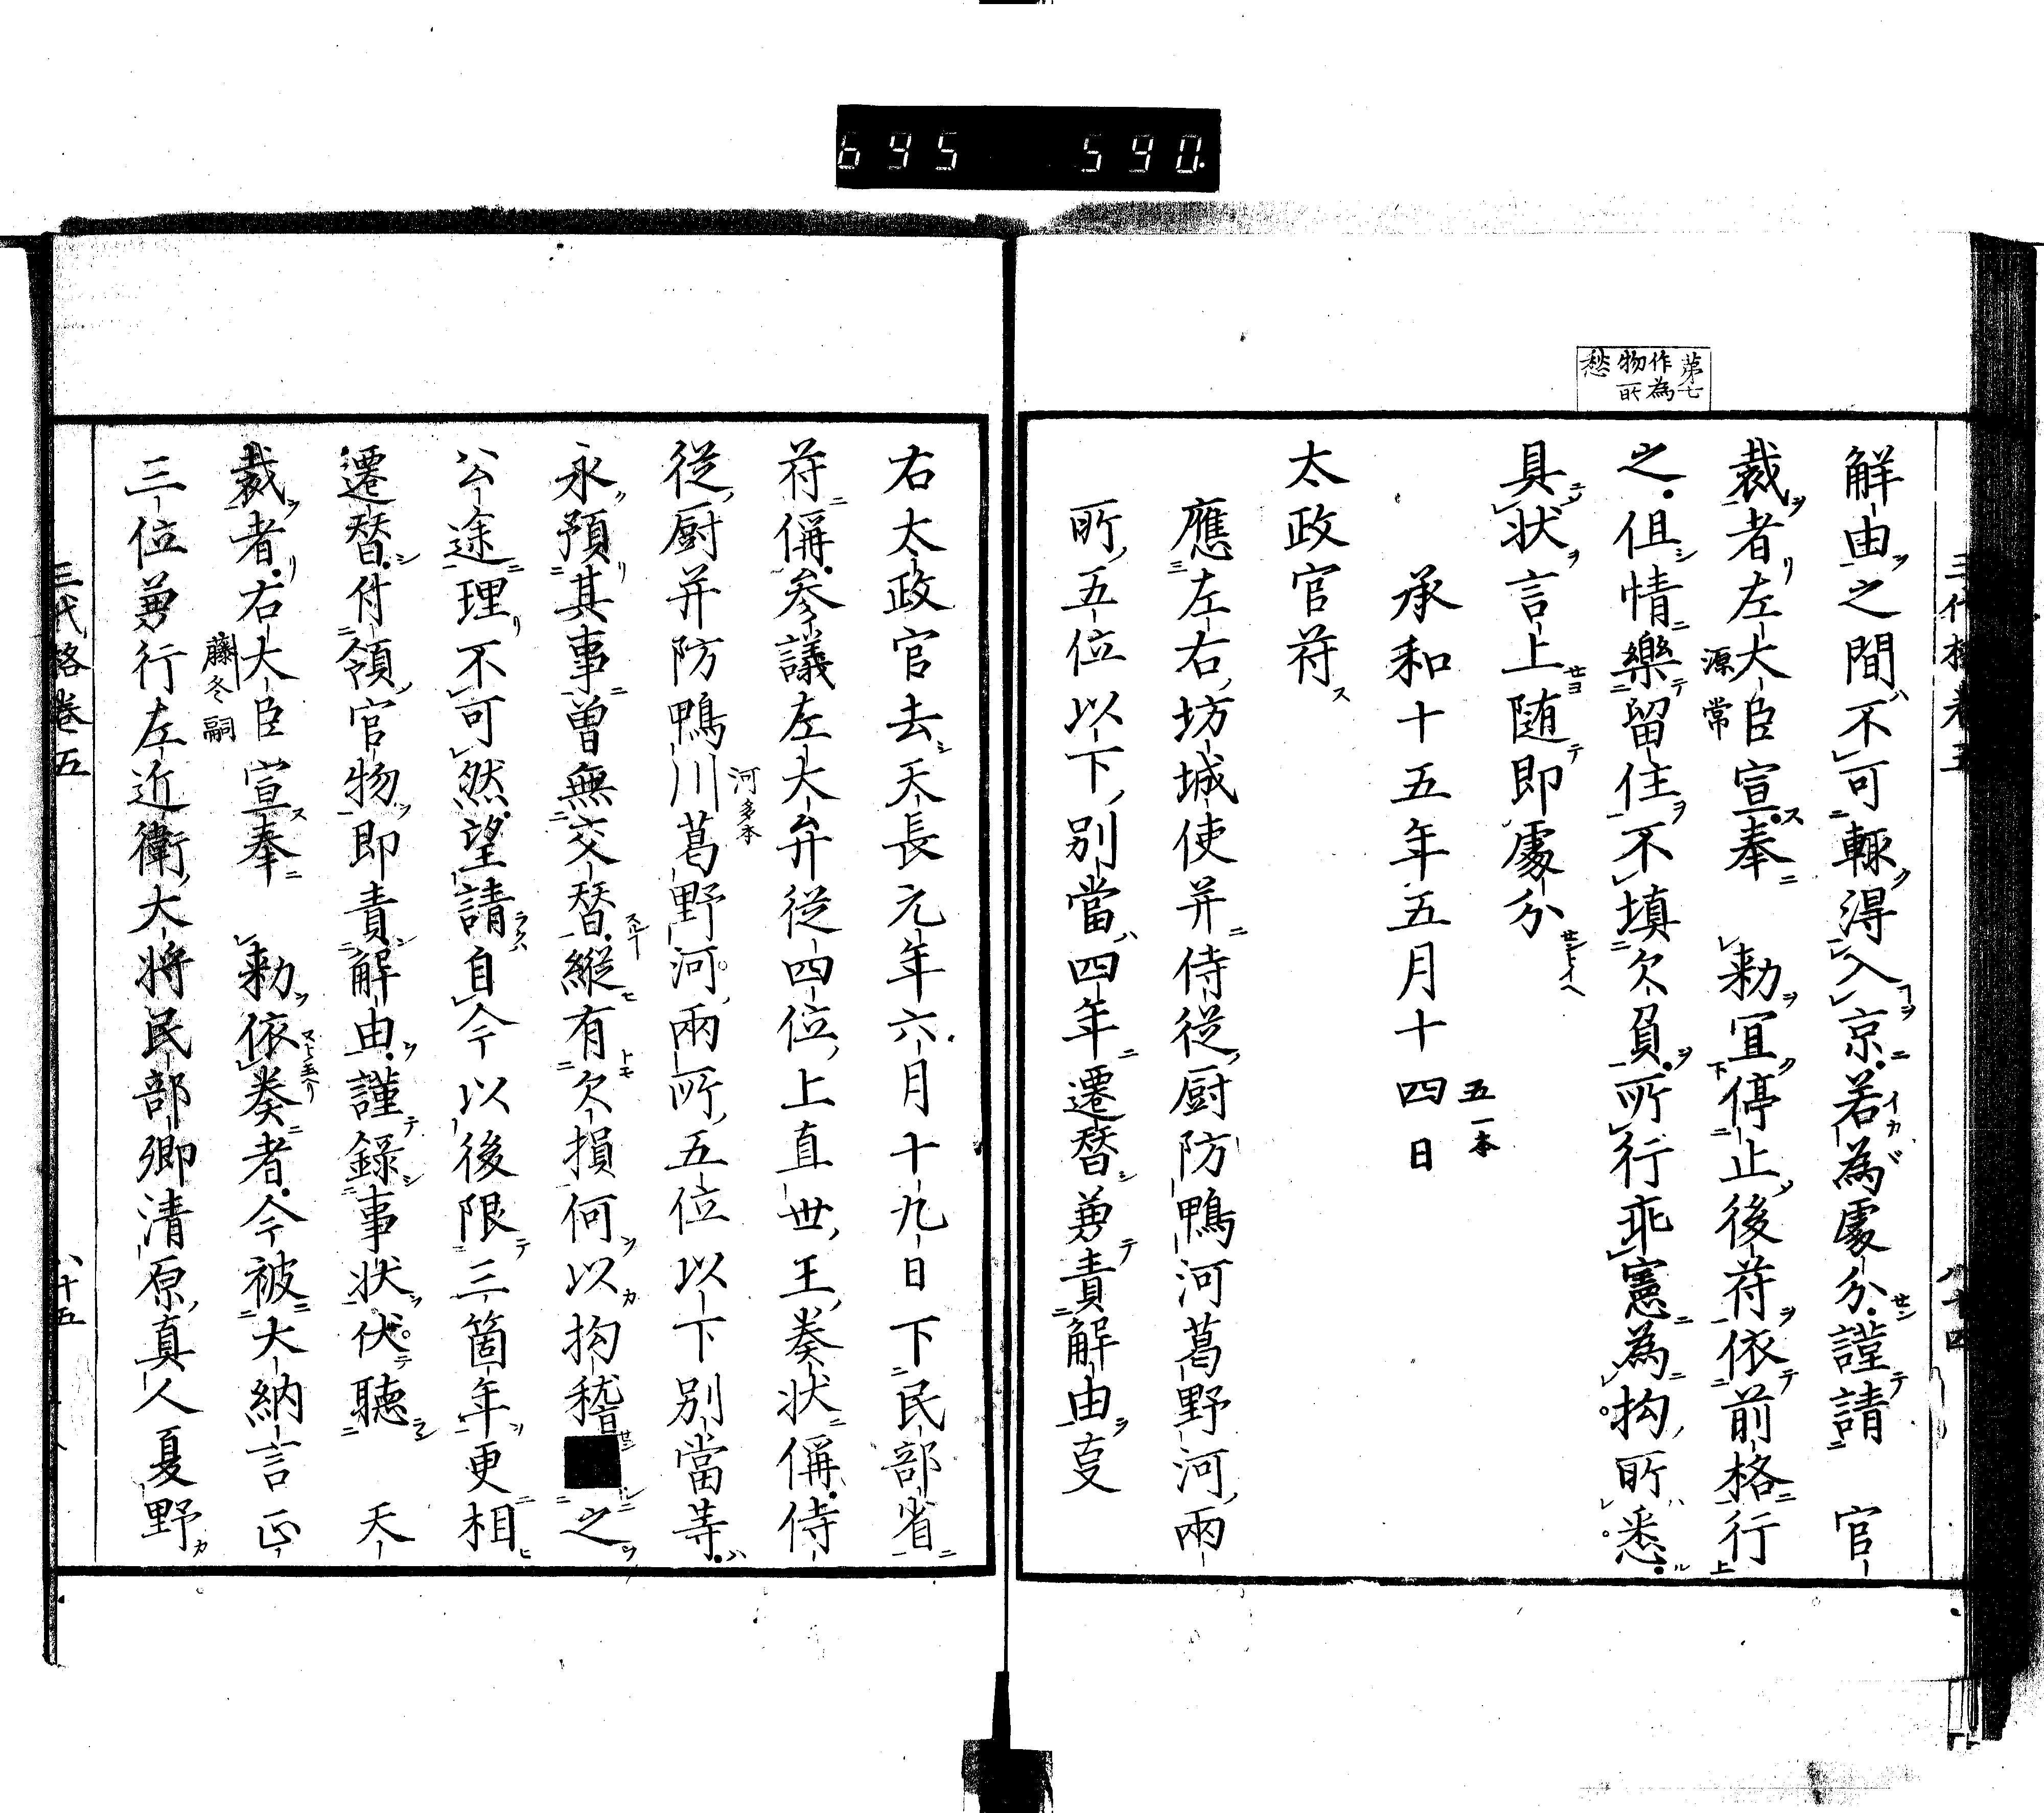 695 590
第七
作為
物所
愁
解由之間不可輙得入京若為處分謹請 官
裁者左大臣宣奉 勅宜停止後符依前格行
源常
之但情樂留住不填欠負所行乖憲為拘所悉
具状言上随即處分
承和十五年五月十四日
五一本
太政官符
應左右坊城使并侍従厨防鴨河葛野河兩
所五位以下別當四年遷替兼責解由𠮷
右太政官去天長元年六月十九日下民部省
符偁参議左大弁従四位上直世王奏状偁侍
従厨并防鴨川葛野河兩所五位以下別當等
河多本
永預其事曽無交替縱有欠損何以拘稽■之
公途理不可然望請自今以後限三箇年更相
遷替付領官物即責解由謹録事状伏聴 天
裁者右大臣宣奉 勅依奏者今被大納言正
藤冬嗣
三位兼行左近衛大将民部卿清原真人夏野
三代格巻五
八十五